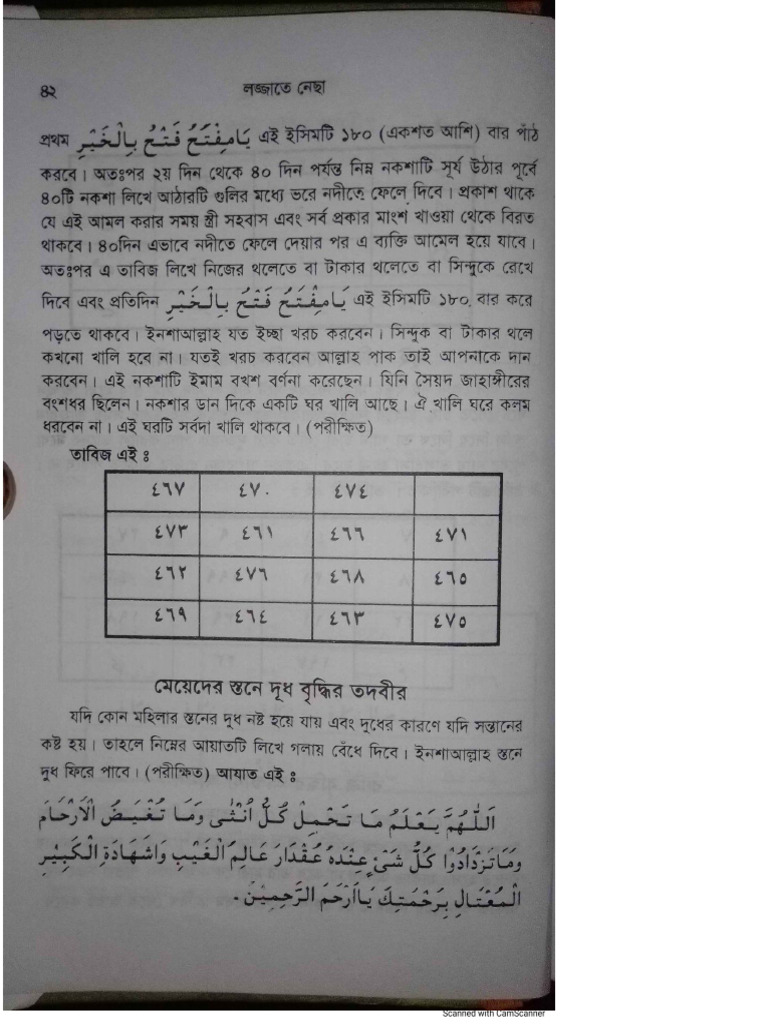 ৪২ লজ্জাতে নেছা
প্রথম يَامِفْتَحُ فَتْحُ بِالْخَيْرِ এই ইসিমটি ১৮০ (একশত আশি) বার পাঠ
করবে। অতঃপর ২য় দিন থেকে ৪০ দিন পর্যন্ত নিম্ন নকশাটি সূর্য উঠার পূর্বে
৪০টি নকশা লিখে আঠারটি গুলির মধ্যে ভরে নদীতে ফেলে দিবে। প্রকাশ থাকে
যে এই আমল করার সময় স্ত্রী সহবাস এবং সর্ব প্রকার মাংশ খাওয়া থেকে বিরত
থাকবে। ৪০দিন এভাবে নদীতে ফেলে দেয়ার পর এ ব্যক্তি আমেল হয়ে যাবে।
অতঃপর এ তাবিজ লিখে নিজের থলেতে বা টাকার থলেতে বা সিন্দুকে রেখে
দিবে এবং প্রতিদিন يَامِفْتَحُ فَتْحُ بِالْخَيْرِ এই ইসিমটি ১৮০ বার করে
পড়তে থাকবে। ইনশাআল্লাহ যত ইচ্ছা খরচ করবেন। সিন্দুক বা টাকার থলে
কখনো খালি হবে না। যতই খরচ করবেন আল্লাহ পাক তাই আপনাকে দান
করবেন। এই নকশাটি ইমাম বখশ বর্ণনা করেছেন। যিনি সৈয়দ জাহাঙ্গীরের
বংশধর ছিলেন। নকশার ডান দিকে একটি ঘর খালি আছে। ঐ খালি ঘরে কলম
ধরবেন না। এই ঘরটি সর্বদা খালি থাকবে। (পরীক্ষিত)
তাবিজ এই ঃ
٤٦٧ ٤٧٠ ٤٧٤
٤٧٣ ٤٦١ ٤٦٦ ٤٧١
٤٦٢ ٤٧٦ ٤٦٨ ٤٦٥
٤٦٩ ٤٦٤ ٤٦٣ ٤٧٥
মেয়েদের স্তনে দুধ বৃদ্ধির তদবীর
যদি কোন মহিলার স্তনের দুধ নষ্ট হয়ে যায় এবং দুধের কারণে যদি সন্তানের
কষ্ট হয়। তাহলে নিম্নের আয়াতটি লিখে গলায় বেঁধে দিবে। ইনশাআল্লাহ স্তনে
দুধ ফিরে পাবে। (পরীক্ষিত) আযাত এই ঃ
اَللّٰهُمَّ يَعْلَمُ مَا تَحْمِلُ كُلُّ اُنْثٰى وَمَا تُغَيِضُ الْاَرْحَامَ
وَمَا تَزْدَادُوْا كُلُّ شَىْءٍ عِنْدَهٗ عُقْدَارَ عَالِمُ الْغَيْبِ وَاشْهَادَةِ الْكَبِيْرِ
الْمُعْتَالِ بِرَحْمَتِكَ يَااَرْحَمَ الرَّحِمِيْنَ۔
Scanned with CamScanner